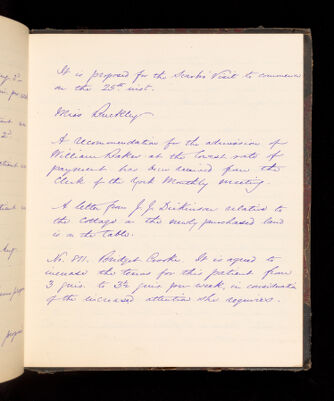 It is proposed for the Scarbro' Visit to commence
on the 25th inst.
Miss Buckley
A recommendation for the admission of
William Baker at the lowest rate of
payment has been received from the
Clerk of the York Monthly Meeting.
A letter from J. J. Dickinson relative to
the cottage on the newly purchased land
is on the table.
No. 811. Bridget Cooke. It is agreed to
increase the terms for this patient from
3 gns. to 3½ gns per week, in consideration
of the increased attention she requires.